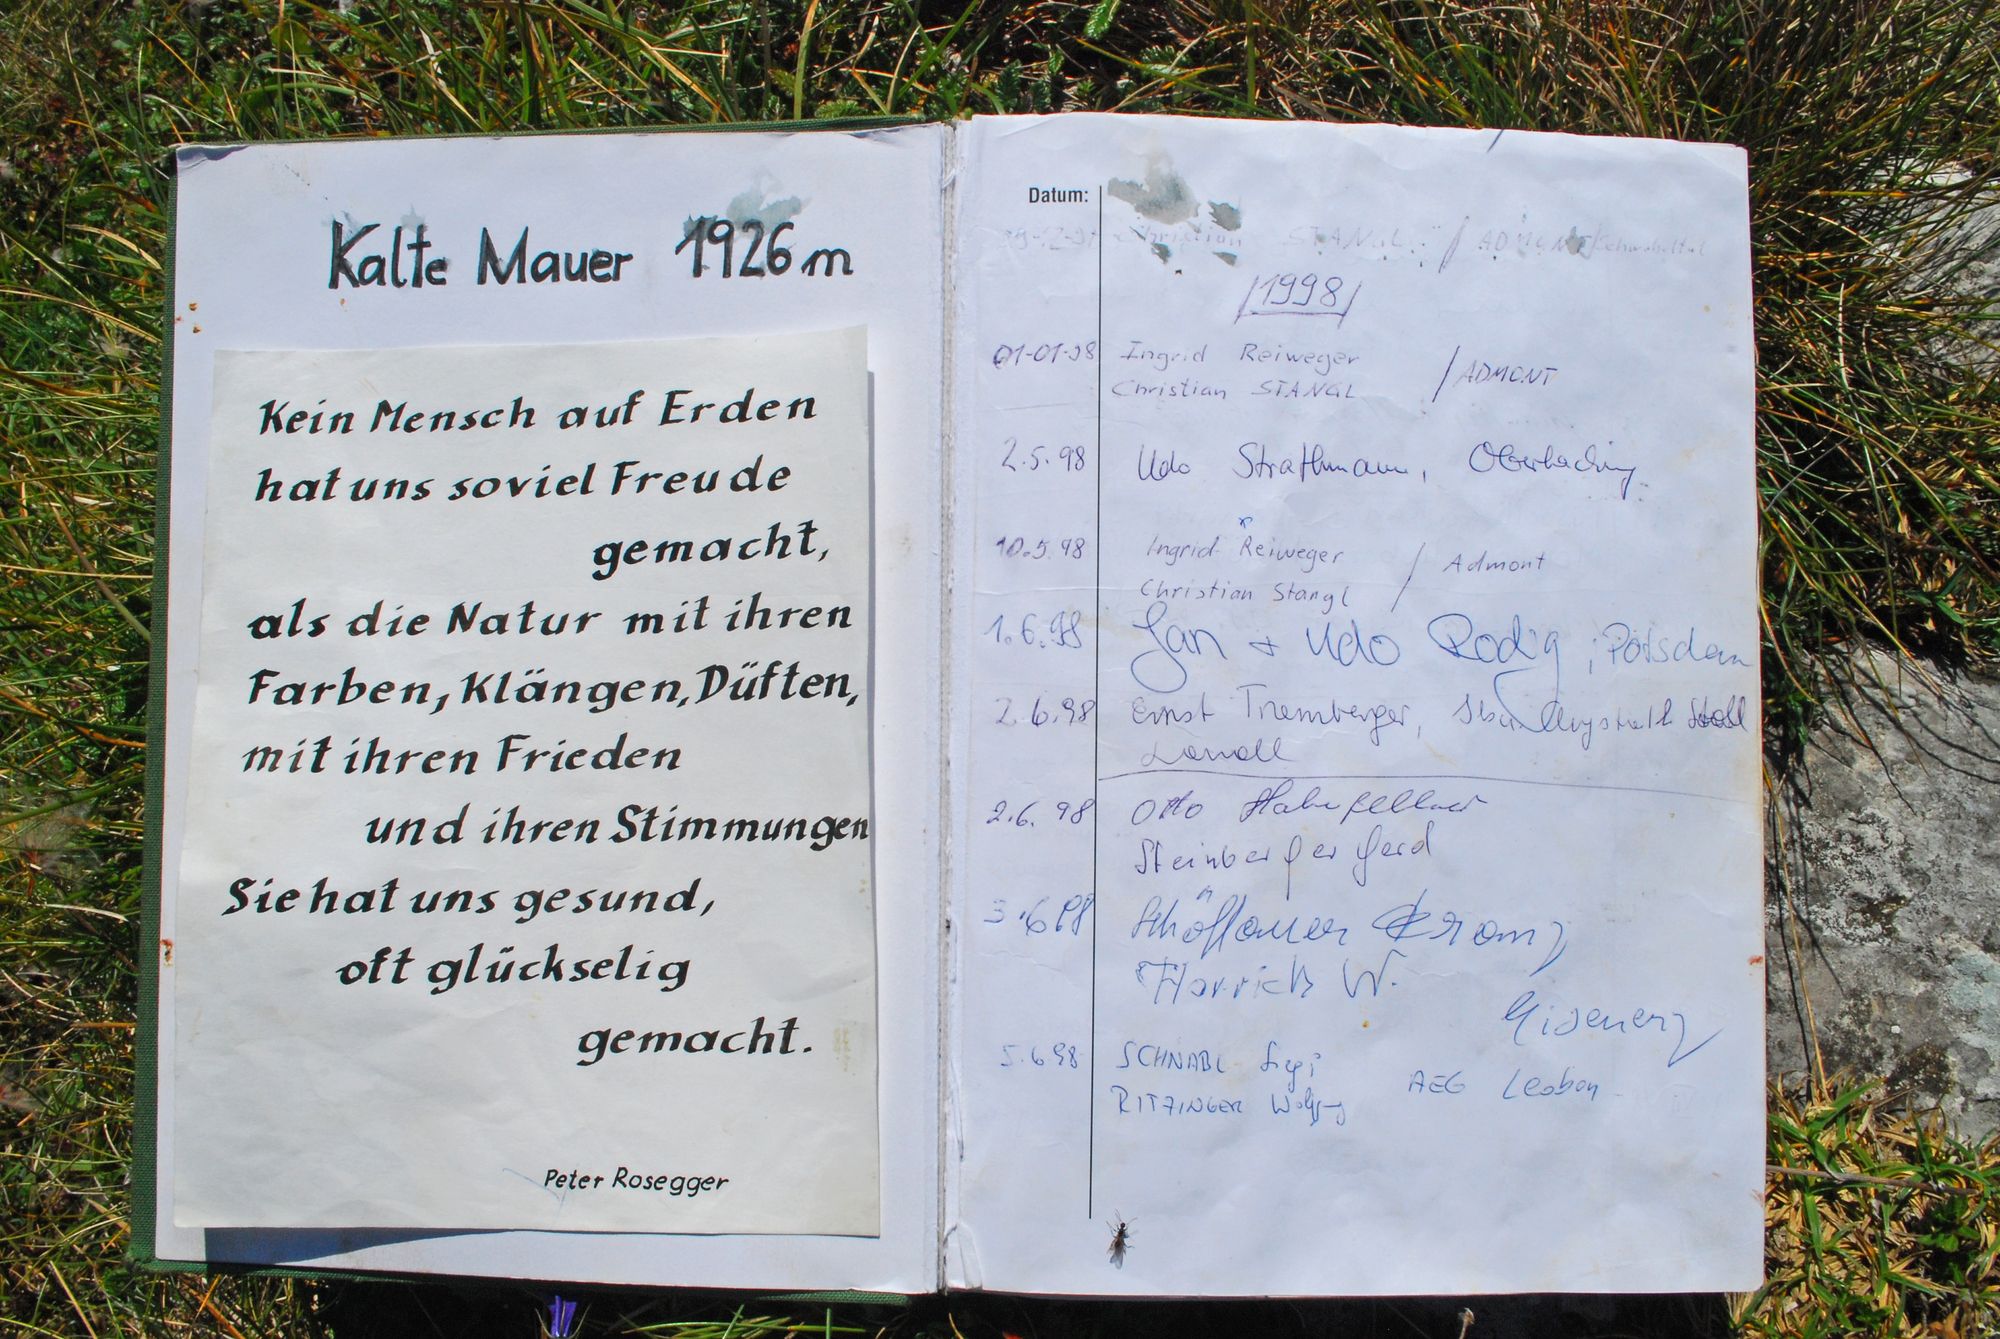 Kalte Mauer 1926m
Kein Mensch auf Erden
hat uns soviel Freude
gemacht,
als die Natur mit ihren
Farben, Klängen, Düften,
mit ihren Frieden
und ihren Stimmungen
Sie hat uns gesund,
oft glückselig
gemacht.
Peter Rosegger
Datum:
Christian STANGL / ADMONT
/1998/
01-01-98 Ingrid Reiweger
Christian STANGL / ADMONT
2.5.98 Udo Strathmann,
10.5.98 Ingrid Reiweger
Christian Stangl / Admont
1.6.98 Jan + Udo Rodig ; Potsdam
2.6.98 Ernst
2.6.98 Otto
Steinberger Gerd
3.6.98
W.
Eisenerz
5.6.98 SCHNABL Sigi
RITZINGER Wolfg AEG Leoben